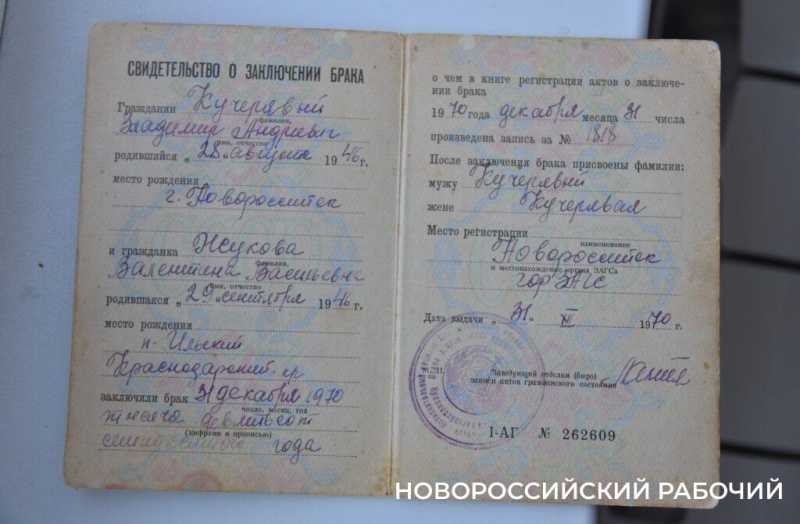 СВИДЕТЕЛЬСТВО О ЗАКЛЮЧЕНИИ БРАКА
Гражданин Кучерявый
фамилия,
Владимир Андреевич
имя, отчество
родившийся „28 августа 1946 г.
место рождения
г. Новороссийск
и гражданка Жукова
фамилия,
Валентина Васильевна
имя, отчество
родившаяся „29 сентября 1946 г.
место рождения
п. Ильский
Краснодарский кр
заключили брак 31 декабря 1970
число, месяц, год
тысяча девятьсот
(цифрами и прописью)
семидесятого года
о чем в книге регистрации актов о заключе-
нии брака
1970 года декабря месяца 31 числа
произведена запись за № 1818
После заключения брака присвоены фамилии:
мужу Кучерявый
жене Кучерявая
Место регистрации
наименование
Новороссийск
и местонахождение органа ЗАГСа
горЗАГС
Дата выдачи „ 31. XII 1970 г.
М.П.
Заведующий отделом (бюро)
записи актов гражданского состояния
I-АГ № 262609
НОВОРОССИЙСКИЙ РАБОЧИЙ